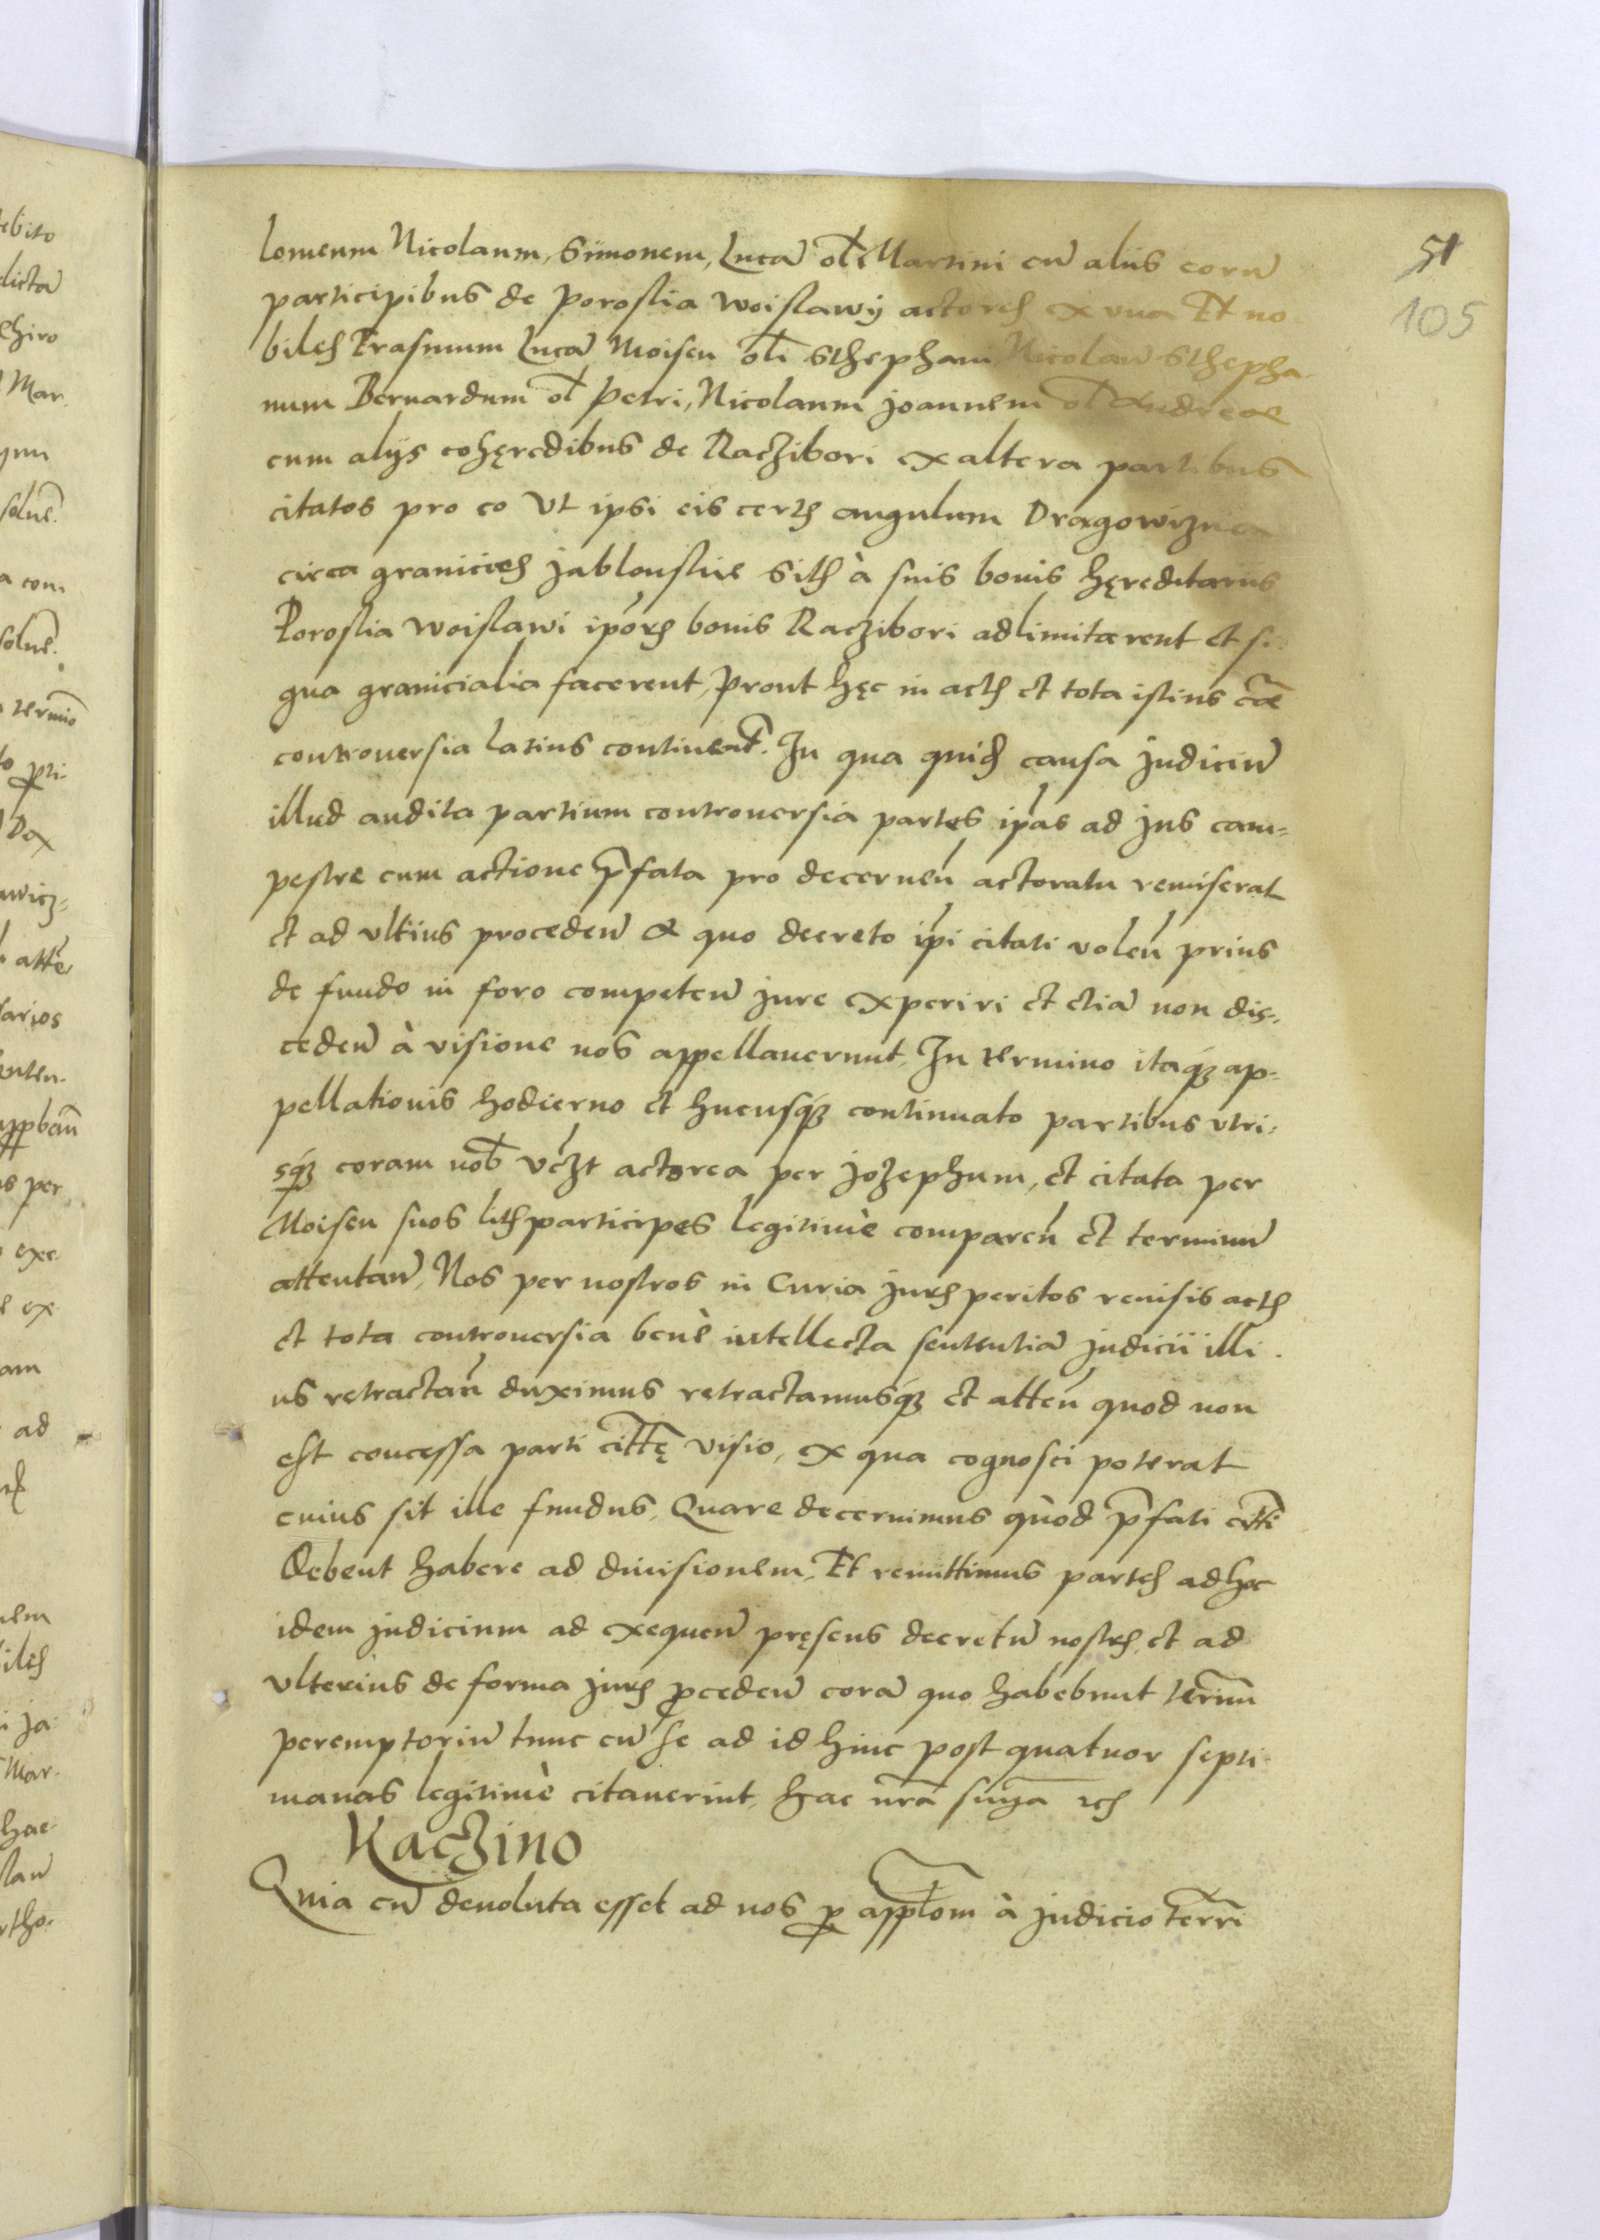 51
105
lomeum Nicolaum, Simonem, Lucã olī Martini cū aliis eorū
participibus de Poroslia Woislawÿ actores ex una Et no
biles Erasmum Lucã Moisen olī Sthephani Nicolaū Stepha
num Bernardum ol Petri, Nicolaum Joannem ol Andreae
cum alÿs cohęredibus de Raczibori ex altera partibus
citatos pro eo Ut ipsi eis certũ angulum Dragowizna
circa granicies Jablonslie Sitũ à suis bonis hęreditariis
Poroslia Woislawi ipōrũ bonis Raczibori adlimitarent et si
gna granicialia facerent, Prout hęc in actis et tota istius cãe
controuersia latius continentr. In qua quid causa Judiciū
illud audita partium controuersia partes ipās ad Jus cam=
pestre cum actione p̄fata pro decernēn actoratu remiserat
et ad ultius procedeñ A quo decreto ipī citati voleñ prius
de fundo in foro competeñ jure experiri et etiã non dis=
cedeñ à visione nos appellauerunt, In termino itaq̃ ap=
pellationis hodierno et hucusq̃ continuato partibus utri=
sq̃ coram nob Uczt actorea per Jozephum, et citata per
Moisen suos litis participes legitimè compareñ et terminū
attentañ, Nos per nostros in Curia juris peritos reuisis actis
et tota controuersia benè intellecta sententiã judicii illi
us retractañ duximus retractamusq̃ et atteñ quod non
est concessa parti cittę visio, ex qua cognosci poterat
cuius sit ille fundus, Quare decernimus quòd p̄fati citti
Debent habere ad diuisionem, Et remittimus partes ad hoc
idem judicium ad exequeñ pręsens decretū nostrũ, et ad
ulterius de forma juris procedeñ corã quo habebunt termiñ
peremptoriū tunc cū se ad id hinc post quatuor septi
manas legitimè citauerint, hac nrã suña rcs
Kaczino
Quia cū deuoluta esset ad nos p applōm à judicio terrī